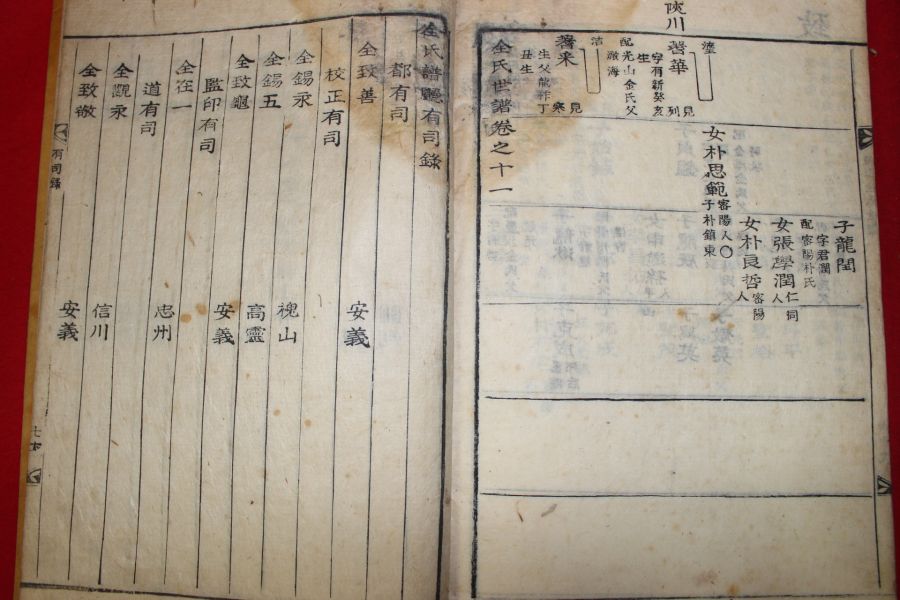 陜川
子龍閏
字君潤
配密陽朴氏
女張學潤 仁同人
女朴良哲 密陽人
女朴思範 密陽人〇
子朴鎮東
著華
字有新癸亥
生
配光山金氏父
海
見
列
著采
生父龍祥丁
丑生
見
寒
全氏世譜卷之十一
全氏譜廳有司錄
都有司
全致善 安義
校正有司
全錫永 槐山
全錫五 高靈
全致 安義
監印有司
全在一 忠州
道有司
全觀永 信川
全致敬 安義
有司錄